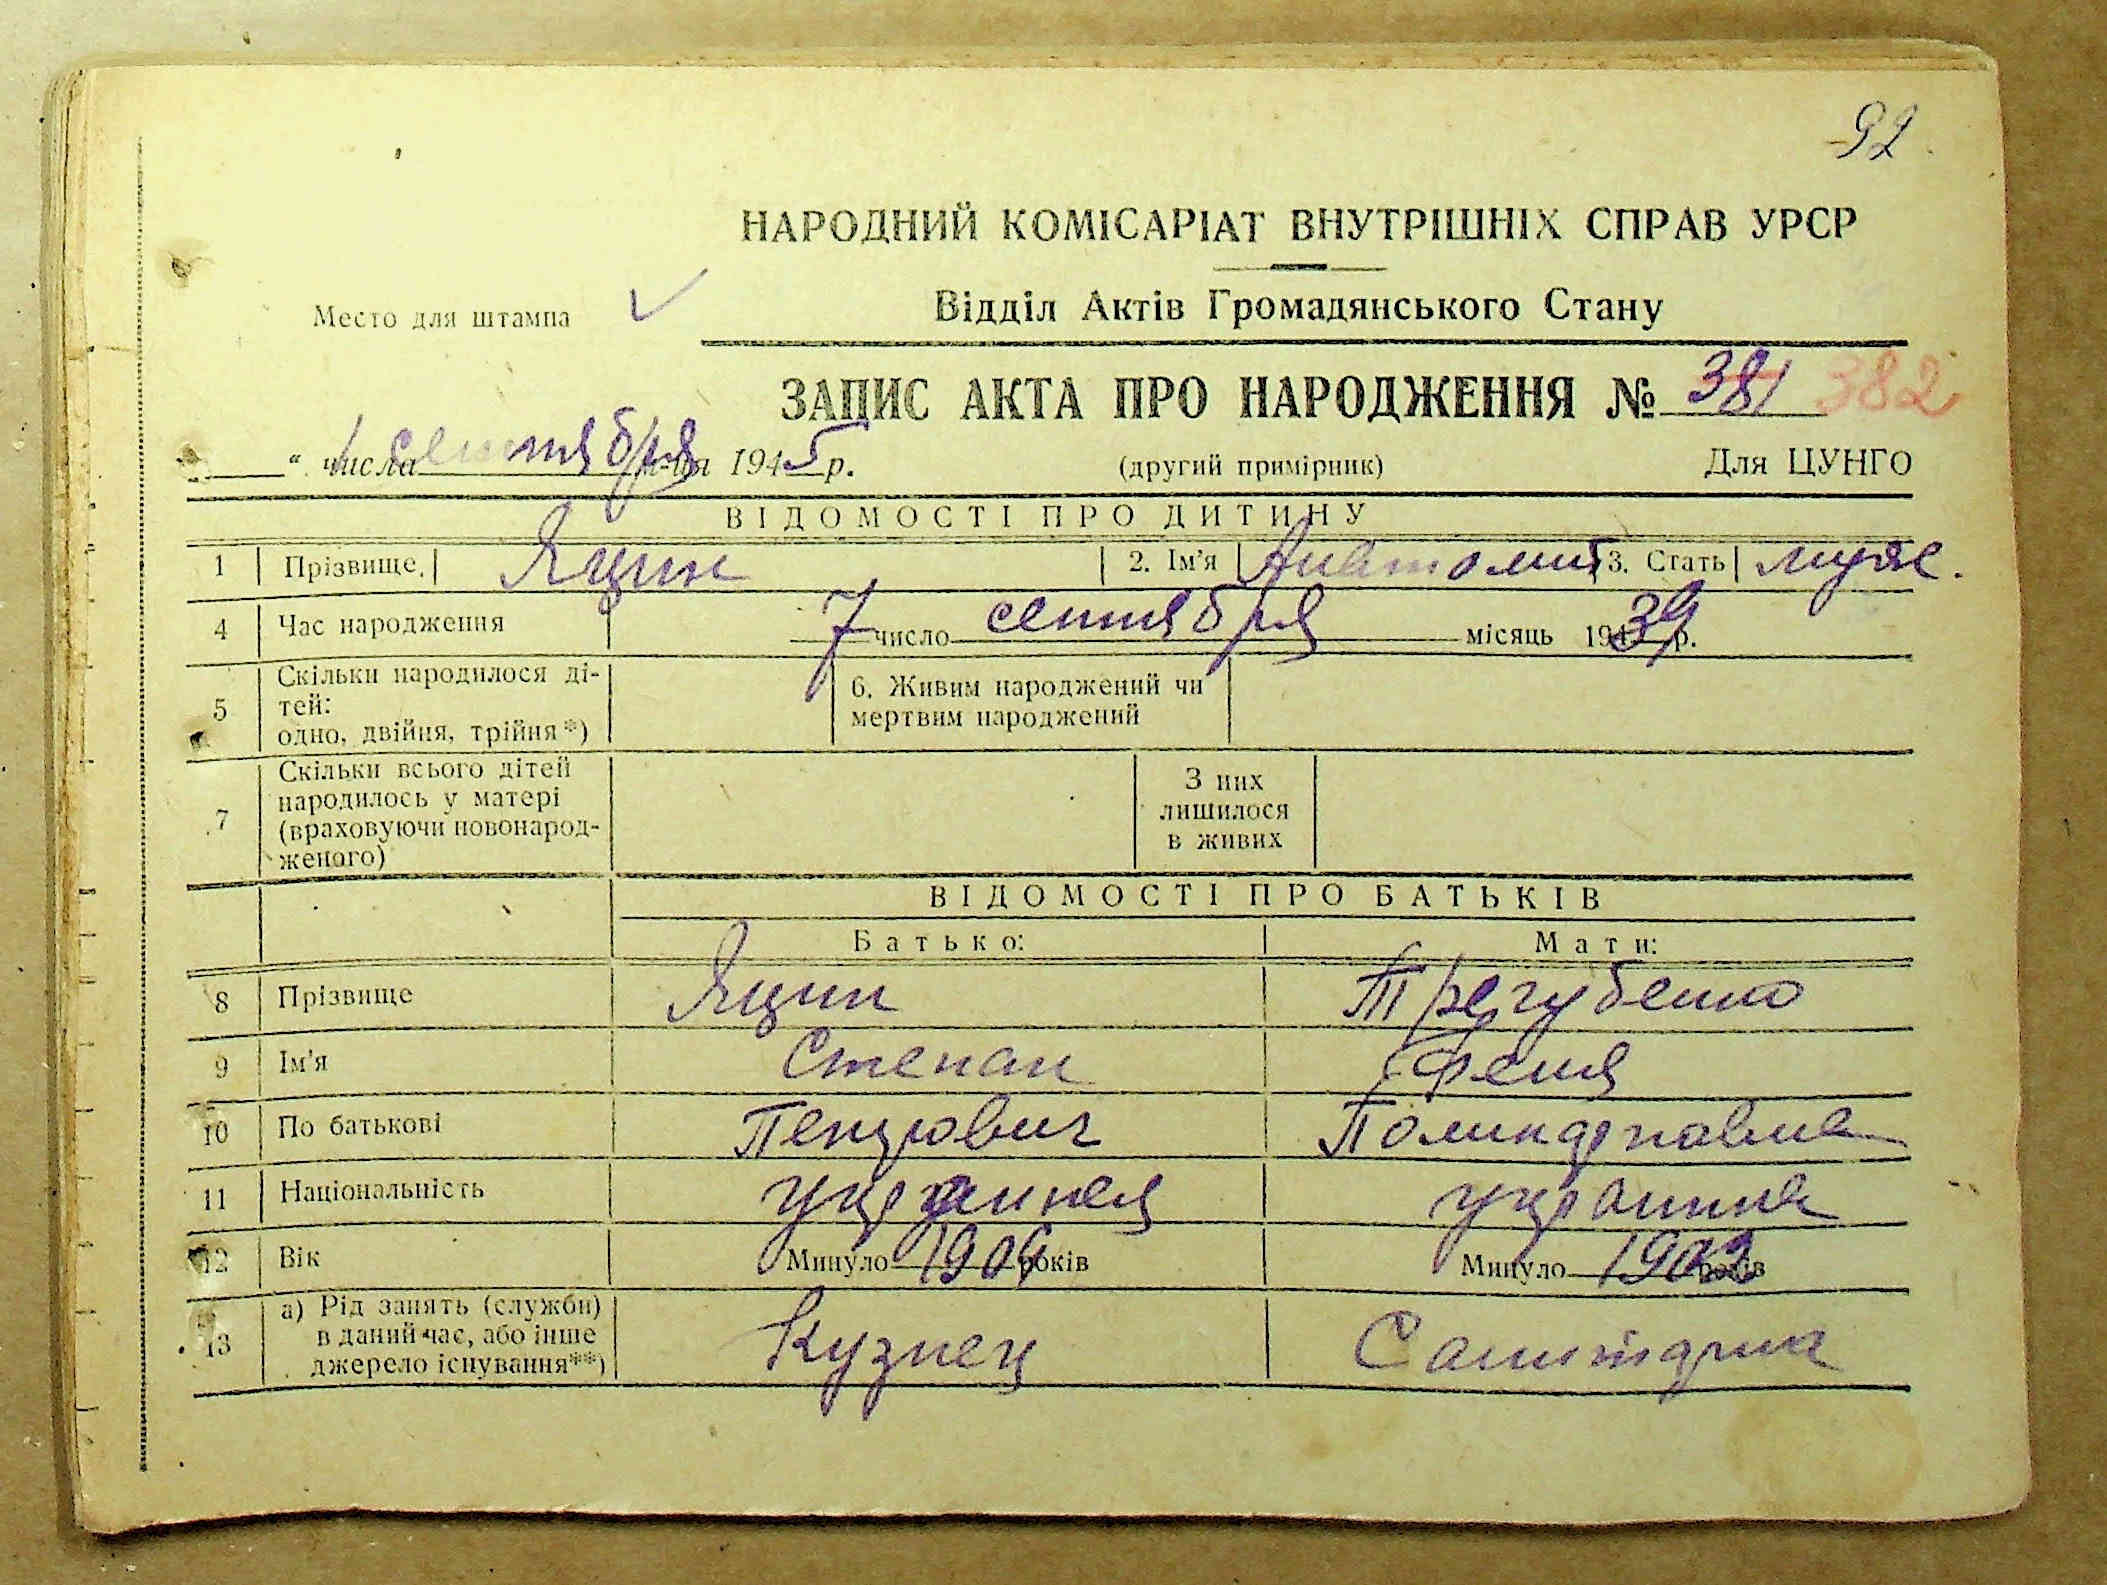 92
НАРОДНИЙ КОМІСАРІАТ ВНУТРІШНІХ СПРАВ УРСР
Відділ Актів Громадянського Стану
Место для штампа
ЗАПИС АКТА ПРО НАРОДЖЕННЯ № 381 382
" 1 числа сентября м-ця 1945 р. (другий примірник) Для ЦУНГО
ВІДОМОСТІ ПРО ДИТИНУ
1 Прізвище. Яцин 2. Ім'я Анатолий 3. Стать муж.
4 Час народження 7 число сентября місяць 1939 р.
5 Скільки народилося ді-
тей:
одно, двійня, трійня*)
6. Живим народжений чи
мертвим народжений
7 Скільки всього дітей
народилось у матері
(враховуючи новонарод-
женого)
З них
лишилося
в живих
ВІДОМОСТІ ПРО БАТЬКІВ
Батько: Мати:
8 Прізвище Яцин Трегубенко
9 Ім'я Степан Феня
10 По батькові
11 Національність украинец украинка
12 Вік Минуло років Минуло років
13 а) Рід занять (служби)
в даний час, або інше
джерело існування**)
Кузнец Санитарка